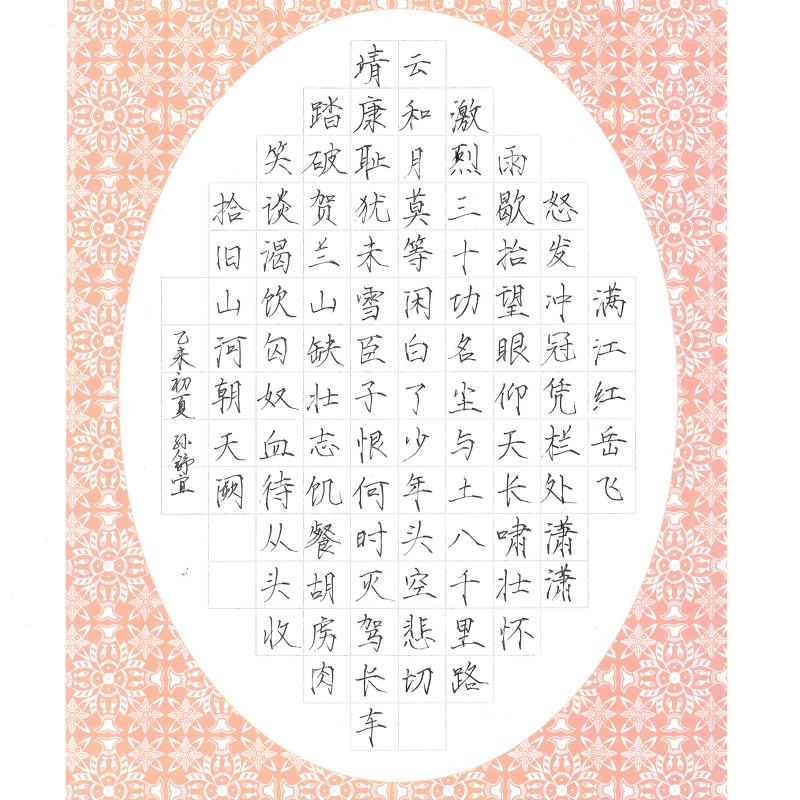 满江红岳飞
怒发冲冠凭栏处潇潇
雨歇抬望眼仰天长啸壮怀
激烈三十功名尘与土八千里路
云和月莫等闲白了少年头空悲切
靖康耻犹未雪臣子恨何时灭驾长车
踏破贺兰山缺壮志饥餐胡虏肉
笑谈渴饮匈奴血待从头收
拾旧山河朝天阙
乙未初夏 孙舒宜